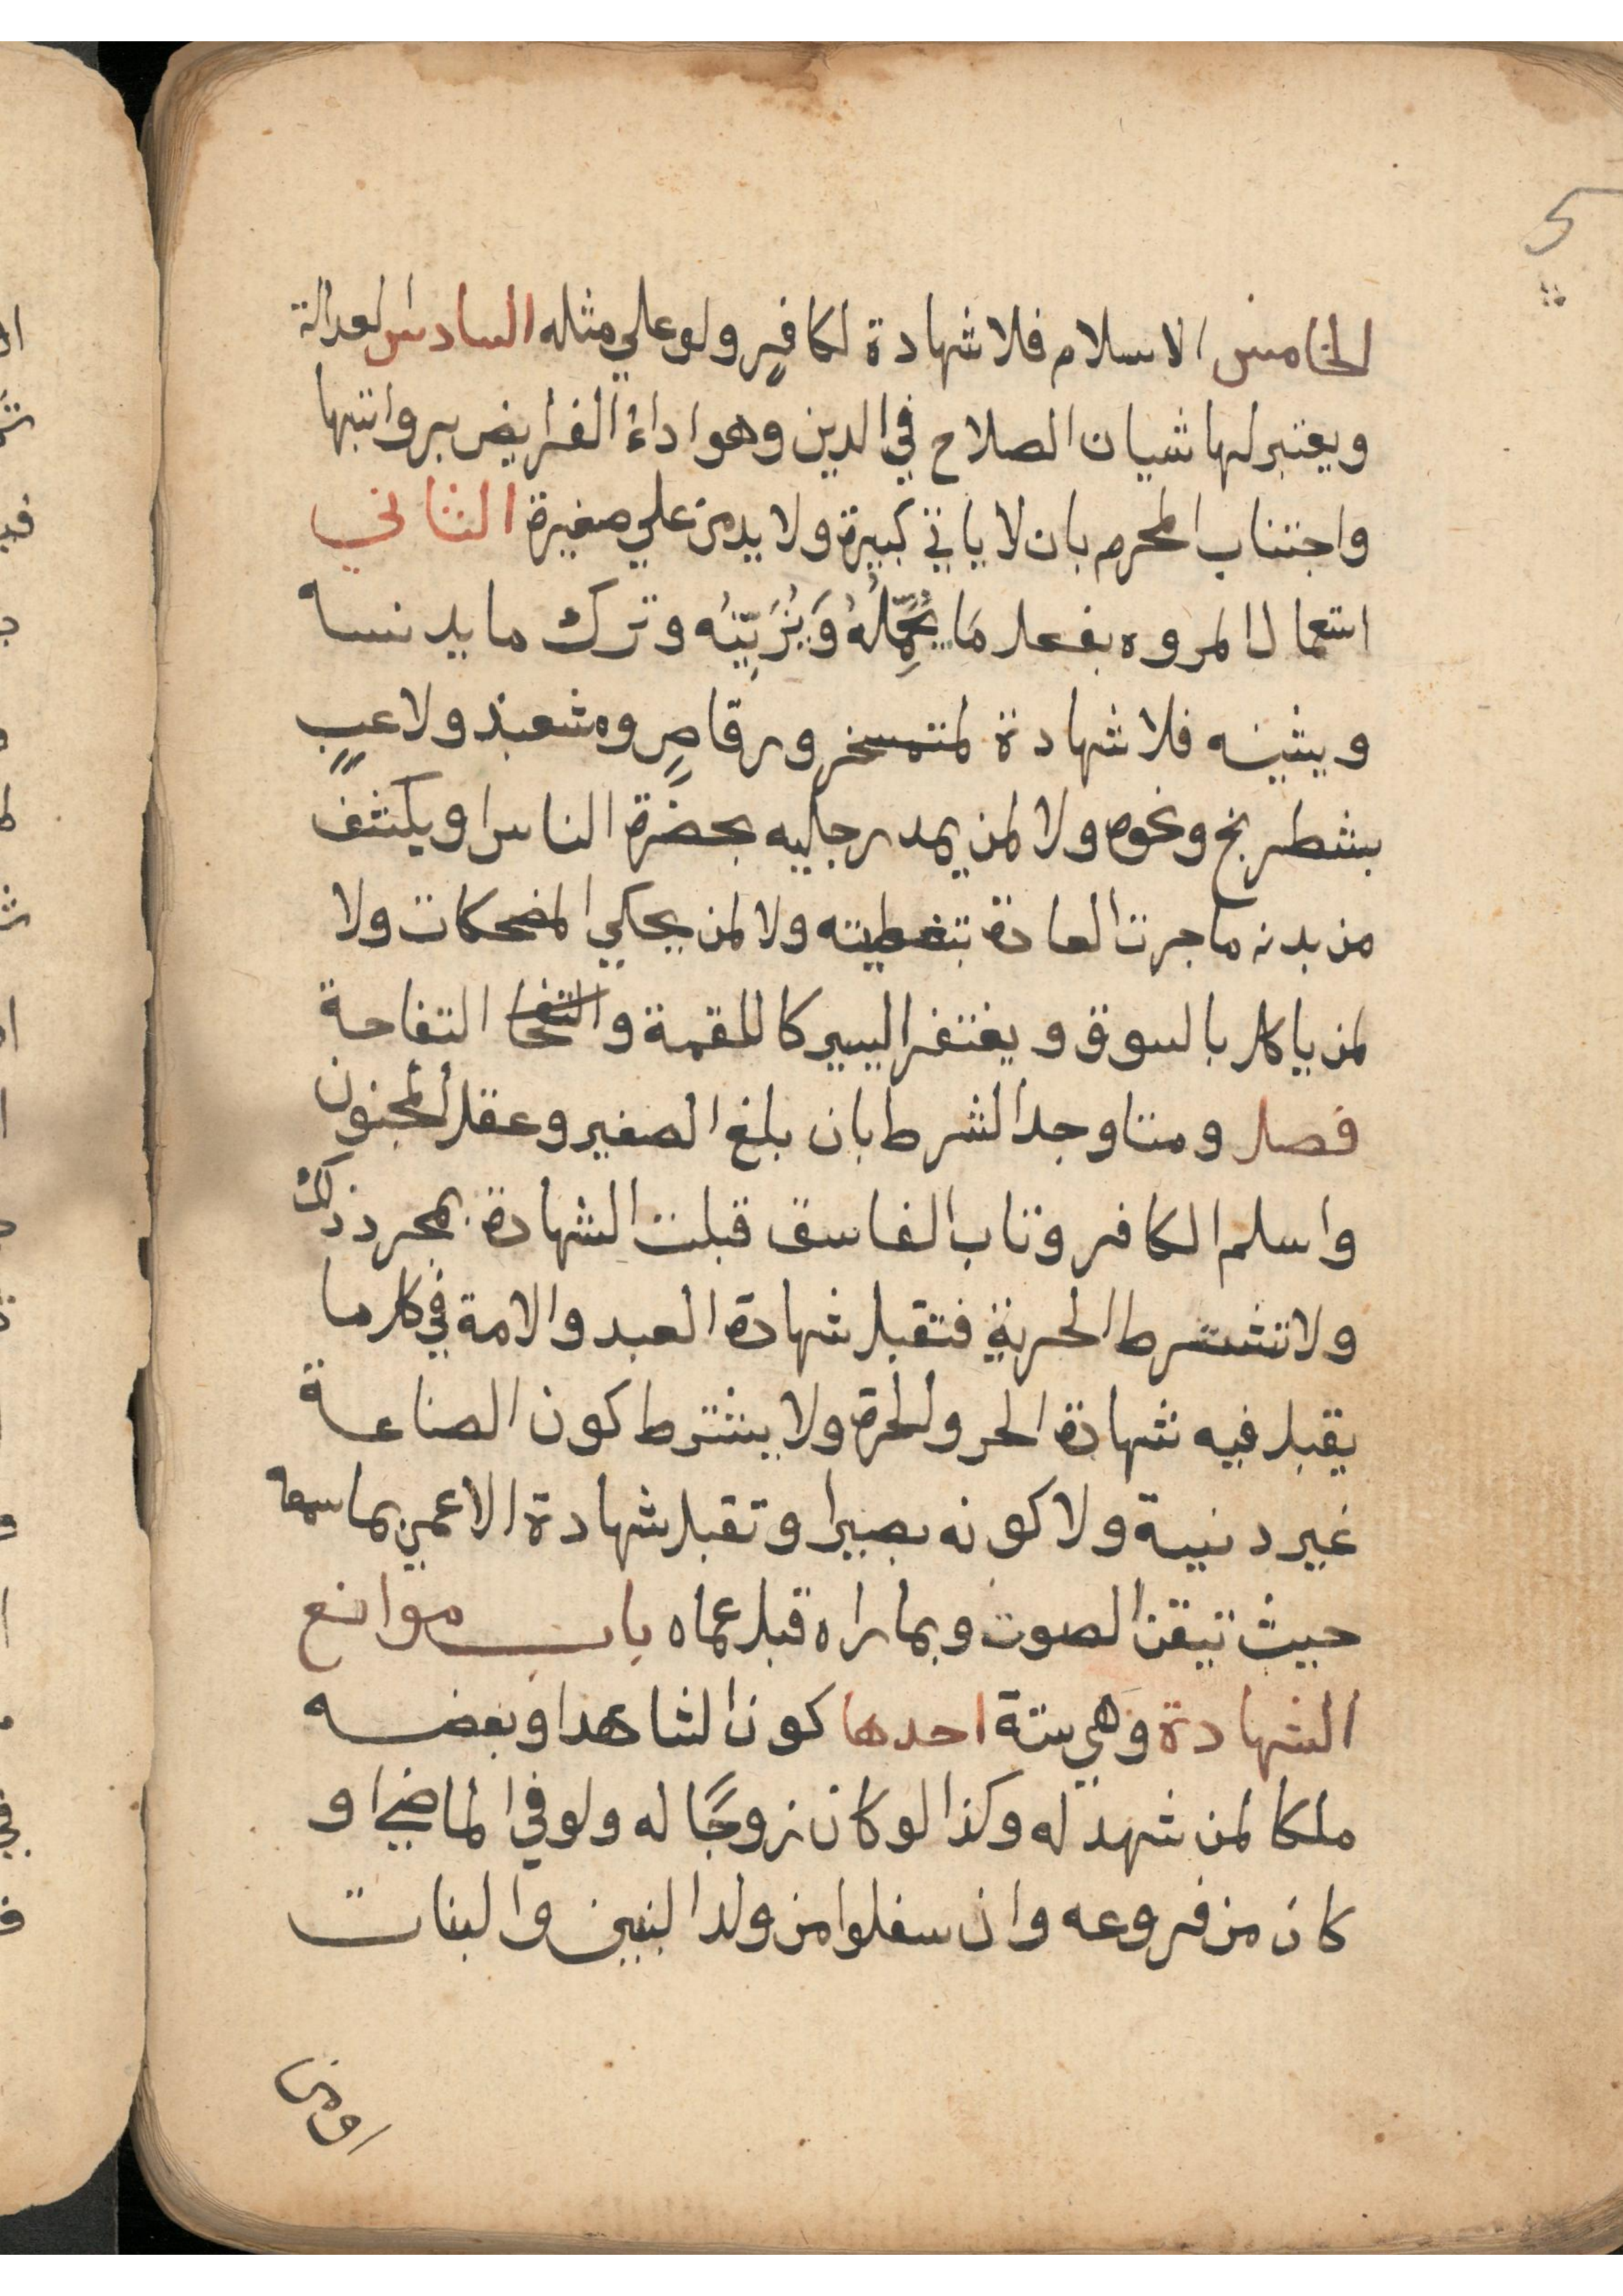 5
الخامس الاسلام فلا شهادة لكافرٍ ولو علي مثله السادس العدالة
ويعتبر لها شيان الصلاح في الدين وهو اداءُ الفرايض برواتبها
واجتناب المحرم بان لا ياتي كبيرة ولا يدمن علي صغيرة الثاني
استعمال المروه بفعل مَا يُجَمِّلُهُ وَيُزَيِّنُه وترك ما يدنسه
ويشينه فلا شهادة لمتمسخر ورقاصٍ ومشعبذ ولاعبٍ
بشطرنج ونحوه ولا لمن يمد رجليه بحضرة الناس او يكشف
من بدنه ما جرت العادة بتغطيته ولا لمن يحكي المضحكات ولا
لمن ياكل بالسوق ويغتفر اليسير كاللقمة والتفاحة
فصل ومتا وجد الشرط بان بلغ الصغير وعقل المجنون
واسلم الكافر وتاب الفاسق قبلت الشهادة بمجرد ذلك
ولا تشترط الحرية فتقبل شهادة العبد والامة في كل ما
يقبل فيه شهادة الحر ولحرة ولا يشترط كون الصناعة
غير دنيية ولا كونه بصيرا وتقبل شهادة الاعمي بما سمعه
حيث تيقن الصوت وبما راه قبل عماه باب موانع
الشهادة وَهي ستة احدها كون الشاهد او بعضه
ملكا لمن شهد له وكذا لو كان زوجًا له ولو في الماضي او
كان من فروعه وان سفلوا من ولد البنين والبنات
او من